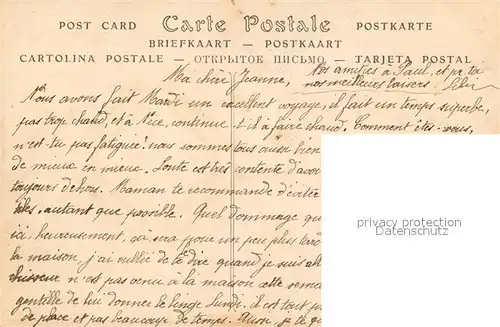 POST CARD Carte Postale POSTKARTE
BRIEFKAART — POSTKAART
CARTOLINA POSTALE — ОТКРЫТОЕ ПИСЬМО — TARJETA POSTAL
Nos amitiés à Paul, et pr toi
nos meilleurs baisers.
Ma chère Jeanne,
Nous avons fait Mardi un excellent voyage, il fait un temps superbe,
pas trop chaud, et à Nice, continue t-il à faire chaud. Comment êtes-vous,
n'est-tu pas fatiguée? nous sommes tous aussi bien
de mieux en mieux. est très contente d'avoir
toujours dehors. Maman te recommande d'éviter
autant que possible. Quel dommage qu
ici, heureusement, çà sera pour un peu plus tard
la maison, j'ai oublié de te dire quand je suis all
n'est pas venu à la maison cette semaine
gentille de lui donner le linge Lundi. il est tout p
de place et pas beaucoup de temps. Aussi je te q
privacy protection
Datenschutz